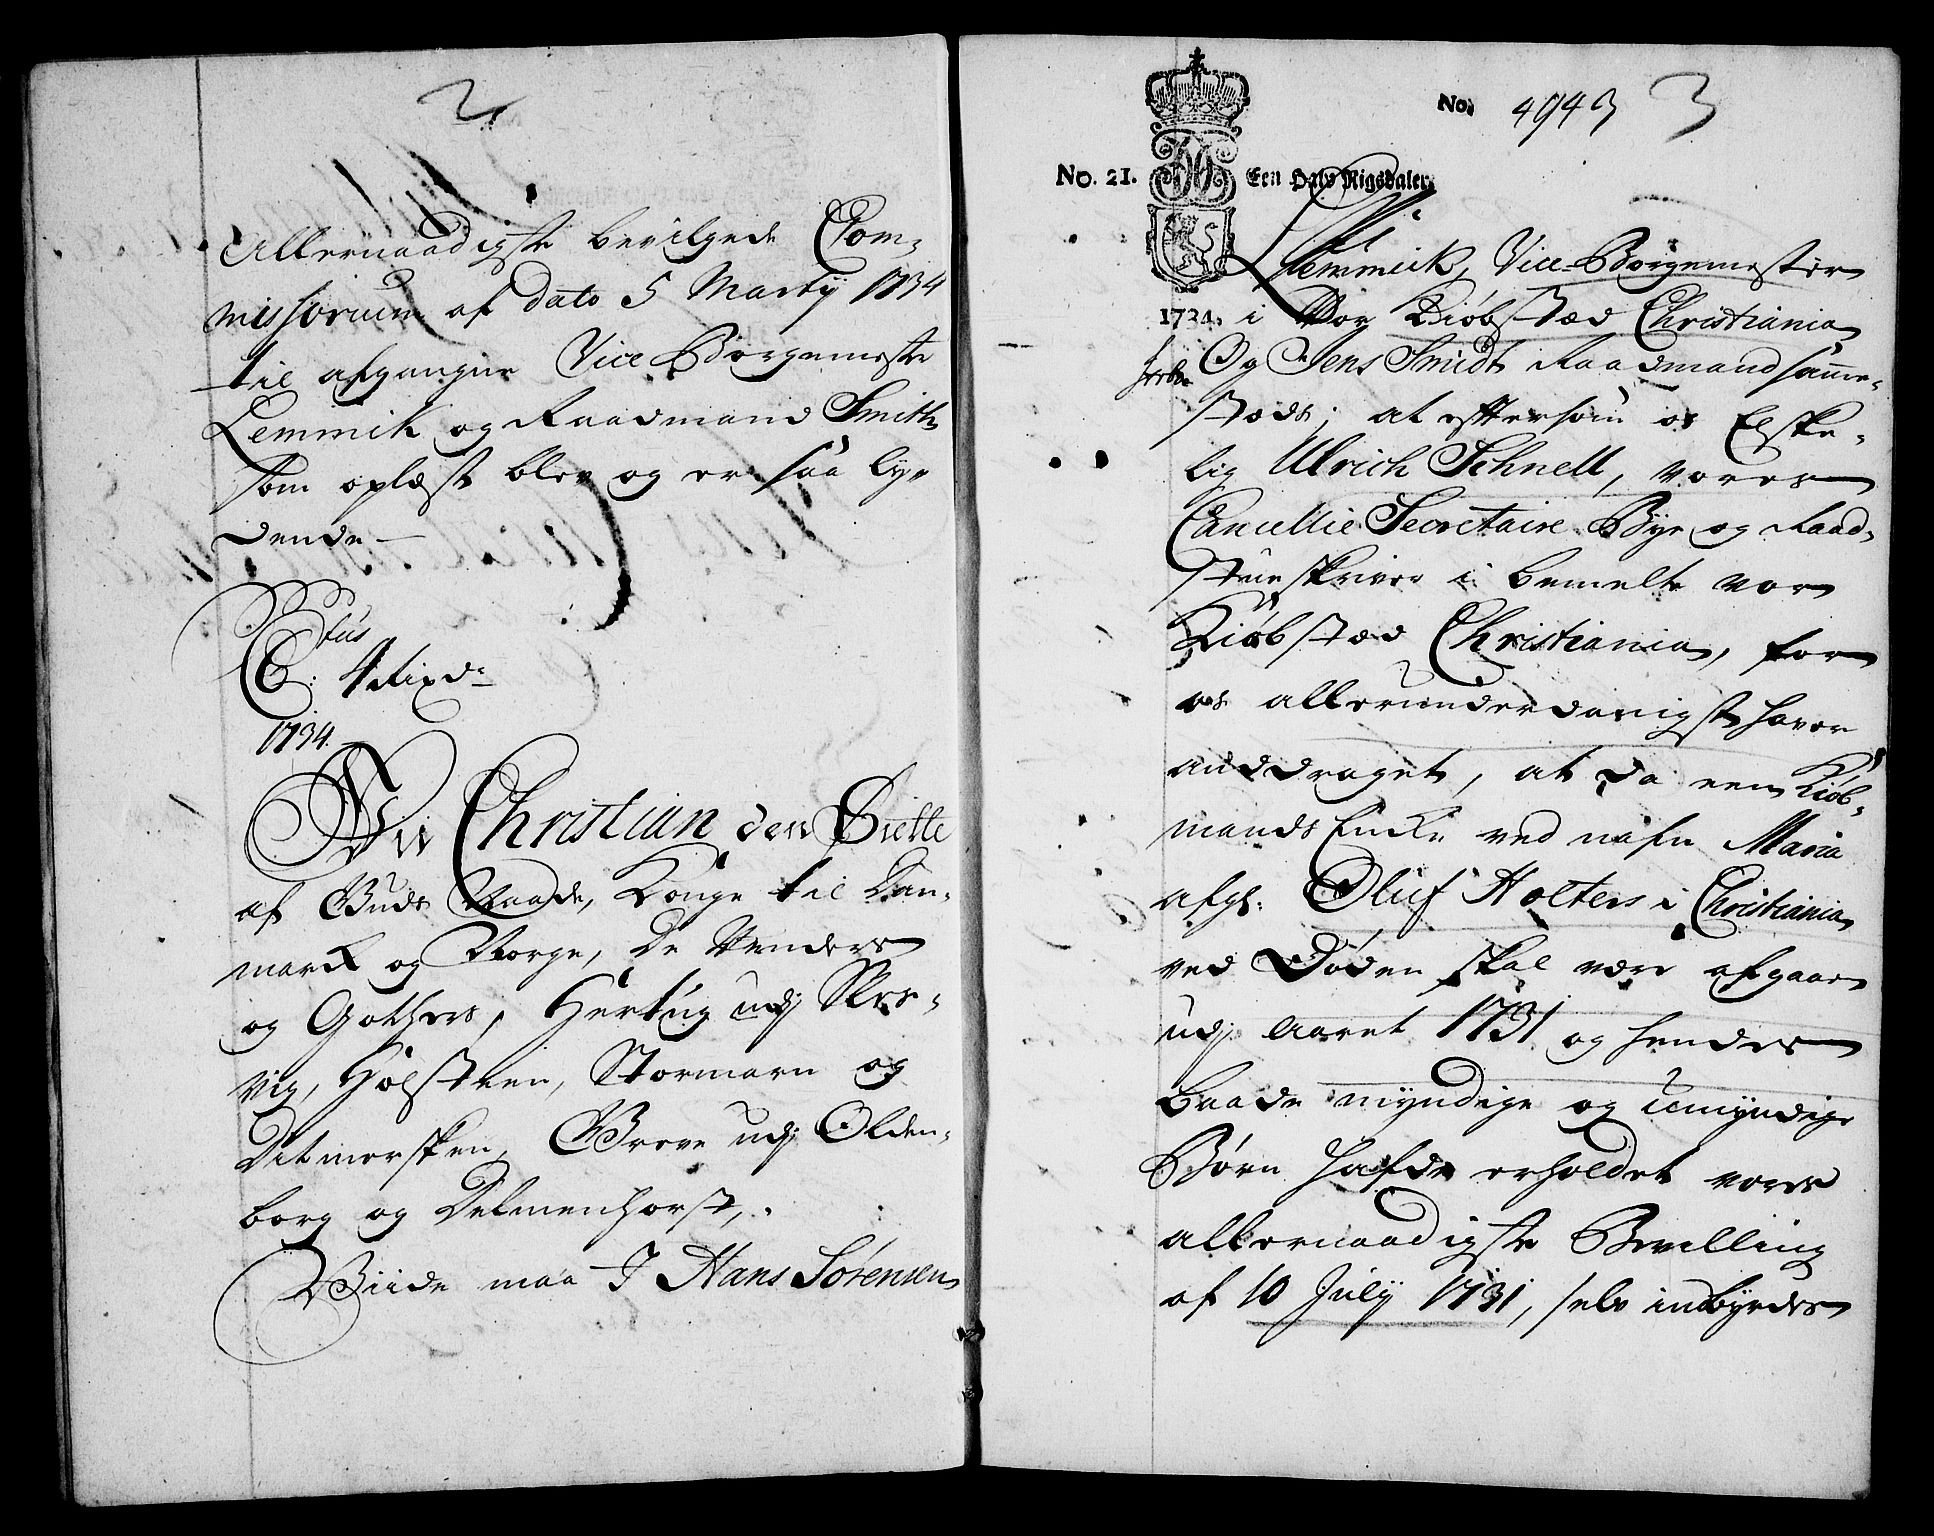 2
Allernaadigste bevilgede Com-
missorium af dato 5 Marty 1734
til afgangne Vice Borgemester
Lemmik og Raadmand Smith
som oplæst blev og er saa ly-
dende
C: 4 Rixd
1734.
Wi Christian den Siette
af Guds Naade, Konge til Dan-
mark og Norge, de Venders
og Gothers, Hertug udj Sles-
vig, Holsteen, Stormarn og
Ditmersken, Greve udj Olden-
borg og Delmenhorst,
Viide maa I Hans Sørensen
No. 4943 3
No. 21. Een Halv Rigsdaler.
Lemmick, Vice-Borgemester
1734. i Vor Kiøbstæd Christiania
Og Jens Smidt Raadmand samme-
stæds; at eftersom os Elske-
lig Ulrich Schnell, vores
Cancellie Secretaire Bye og Raad-
stue skriver i bemelte vor
Kiøbstæd Christiania, for
os allerunderdanigst haver
anddraget, at da een Kiøb-
mands Encke ved nafn Maria
afg: Oluf Holters i Christiania
ved Døden skal være afgaaen
udj Aaret 1731 og hendes
baade myndige og umyndige
Børn hafde erholdet vores
allernaadigste Bevilling
af 10 July 1731, selv inbyrdes